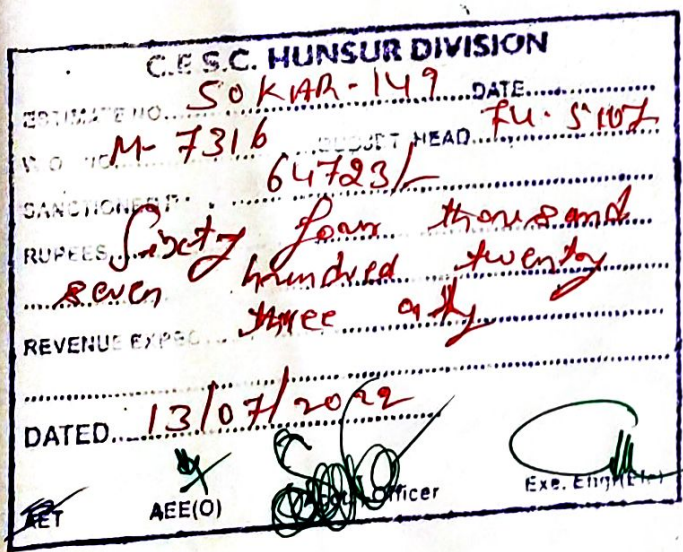 C.E.S.C. HUNSUR DIVISION
ESTIMATE NO. SOKAR-149 DATE
W.O. NO. M-7316 BUDGET HEAD 74.5107
SANCTIONED 64723/-
RUPEES Sixty four thousand
seven hundred twenty
three only
REVENUE EXPEC
DATED 13/07/2022
AET AEE(O) Officer Exe. Engr(Ele)